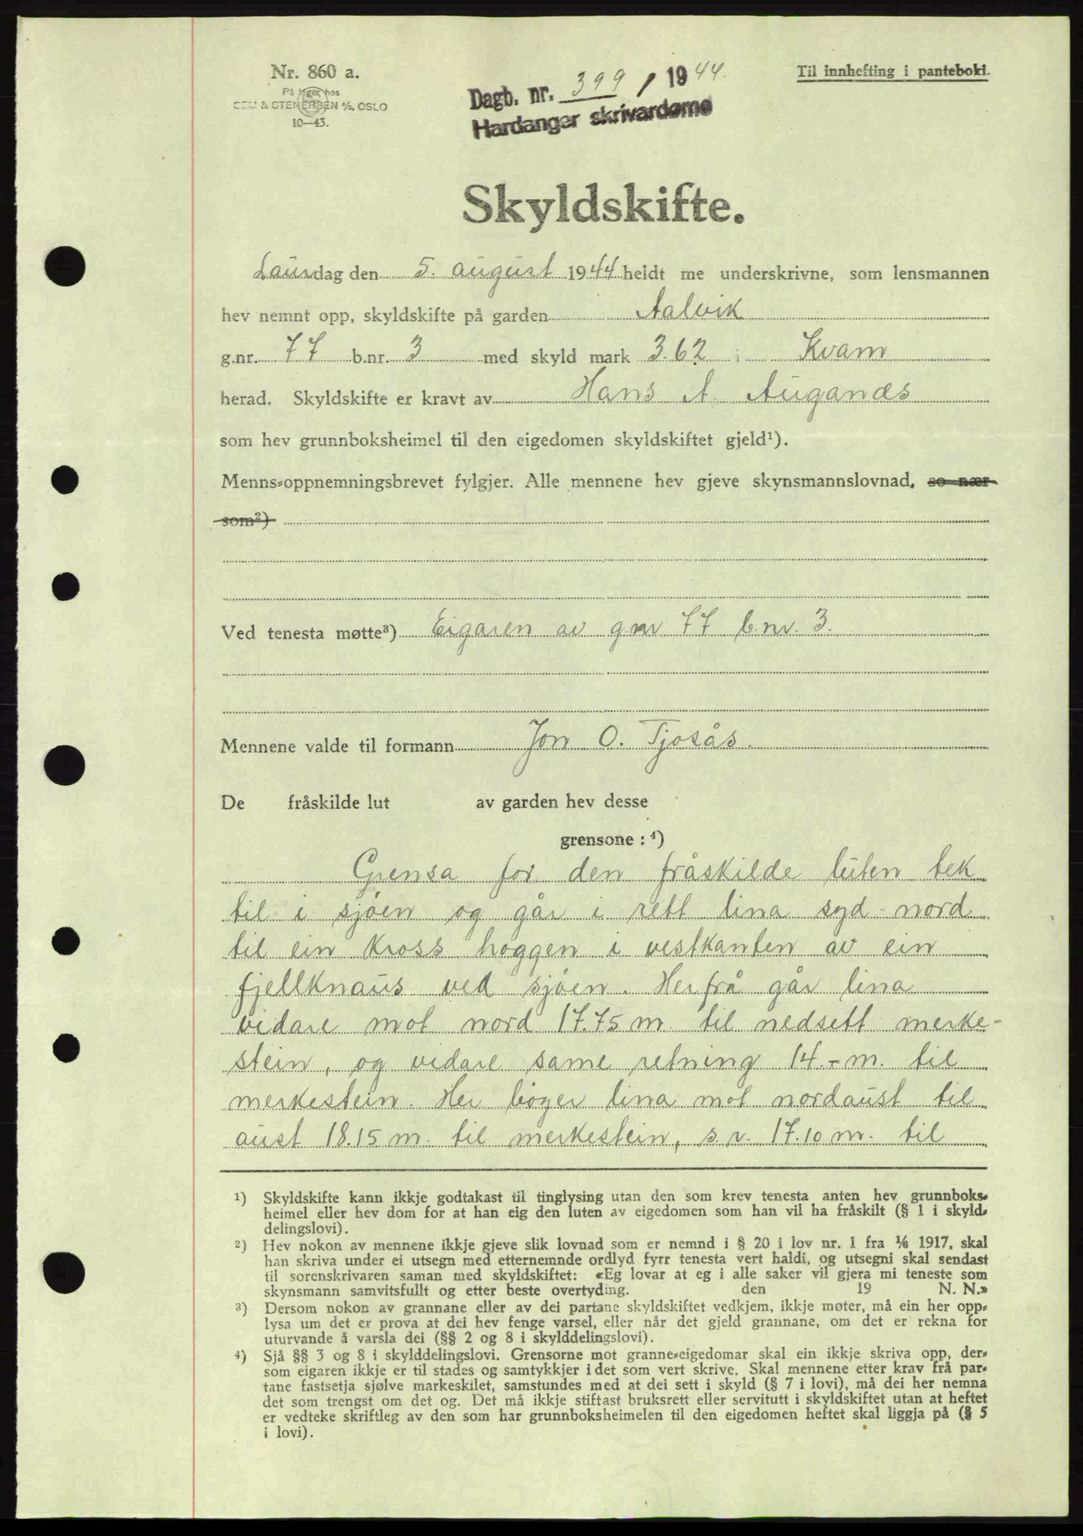 Nr. 860 a.
På lager hos
SEM & STENERSEN A/S, OSLO
10—43.
Dagb. nr. 399 / 1944.
Hardanger skrivardøme
Til innhefting i panteboki.
Skyldskifte.
Laurdag den 5. august 1944 heldt me underskrivne, som lensmannen
hev nemnt opp, skyldskifte på garden Aalvik
g.nr. 77 b.nr. 3 med skyld mark 3.62 i Kvam
herad. Skyldskifte er kravt av Hans A. Auganæs
som hev grunnboksheimel til den eigedomen skyldskiftet gjeld¹).
Menns-oppnemningsbrevet fylgjer. Alle mennene hev gjeve skynsmannslovnad, so nær
som²)
Ved tenesta møtte³) Eigaren av gnr 77 b.nr. 3.
Mennene valde til formann Jon O. Tjosås.
De fråskilde lut av garden hev desse
grensone : ⁴)
Grensa for den fråskilde luten tek
til i sjøen og går i rett lina syd-nord
til ein kross hoggen i vestkanten av ein
fjellknaus ved sjøen. Herfrå går lina
vidare mot nord 17.75 m. til nedsett merke-
stein, og vidare same retning 14.- m. til
merkestein. Her bøger lina mot nordaust til
aust 18.15 m. til merkestein, s.r. 17.10 m. til
¹) Skyldskifte kann ikkje godtakast til tinglysing utan den som krev tenesta anten hev grunnboks-
heimel eller hev dom for at han eig den luten av eigedomen som han vil ha fråskilt (§ 1 i skyld-
delingslovi).
²) Hev nokon av mennene ikkje gjeve slik lovnad som er nemnd i § 20 i lov nr. 1 fra 1/6 1917, skal
han skriva under ei utsegn med etternemnde ordlyd fyrr tenesta vert haldi, og utsegni skal sendast
til sorenskrivaren saman med skyldskiftet: «Eg lovar at eg i alle saker vil gjera mi teneste som
skynsmann samvitsfullt og etter beste overtyding. den 19 N. N.»
³) Dersom nokon av grannane eller av dei partane skyldskiftet vedkjem, ikkje møter, må ein her opp-
lysa um det er prova at dei hev fenge varsel, eller når det gjeld grannane, om det er rekna for
uturvande å varsla dei (§§ 2 og 8 i skylddelingslovi).
⁴) Sjå §§ 3 og 8 i skylddelingslovi. Grensorne mot granne-eigedomar skal ein ikkje skriva opp, der-
som eigaren ikkje er til stades og samtykkjer i det som vert skrive. Skal mennene etter krav frå par-
tane fastsetja sjølve markeskilet, samstundes med at dei sett i skyld (§ 7 i lovi), må dei her nemna
det som trengst om det og. Det må ikkje stiftast bruksrett eller servitutt i skyldskiftet utan at heftet
er vedteke skriftleg av den som har grunnboksheimelen til den eigedomen heftet skal liggja på (§ 5
i lovi).